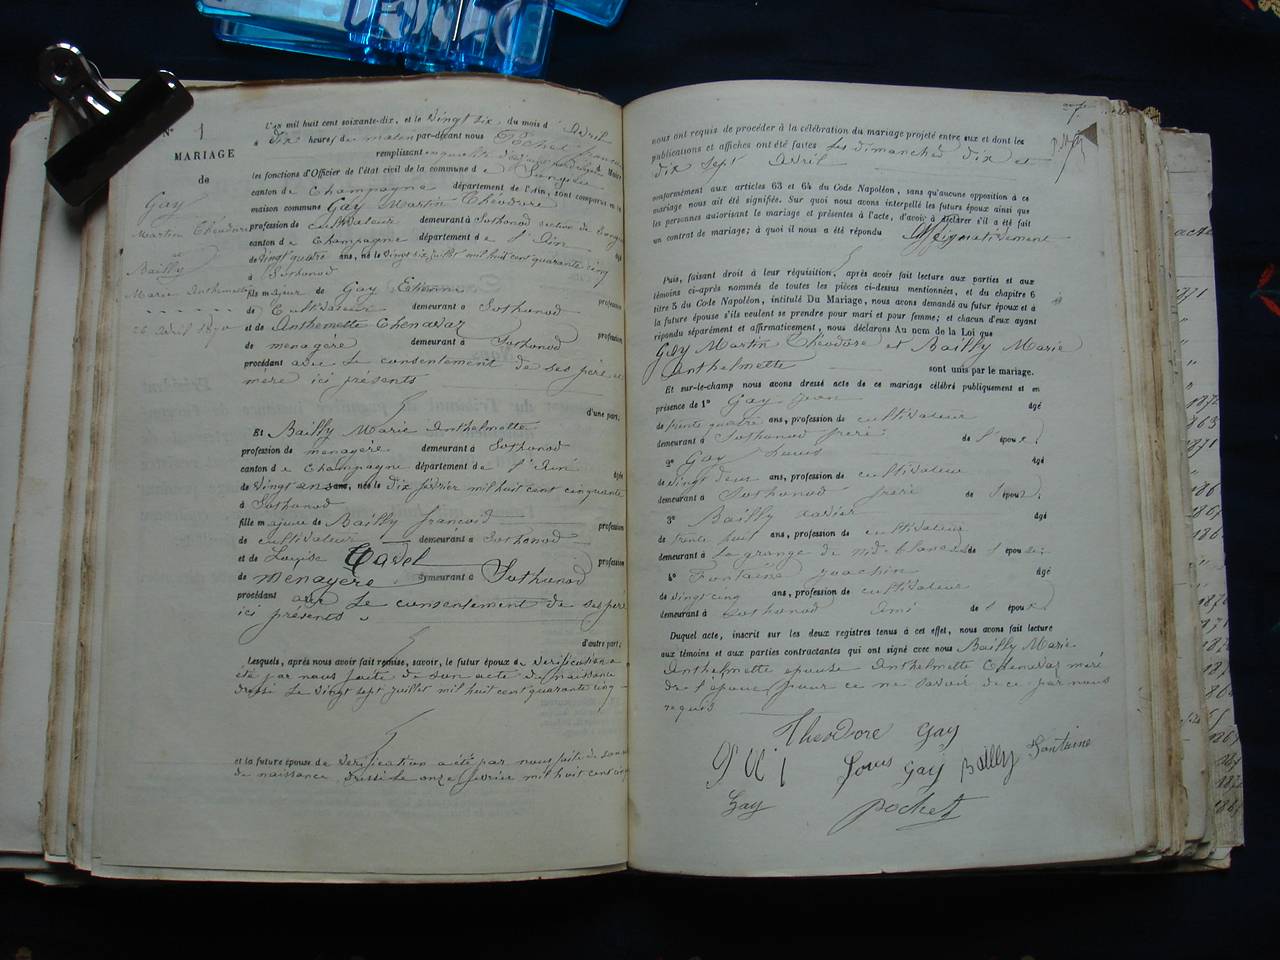 N° 1
MARIAGE
de
Gay
Martin Théodore
et
Bailly
Marie Anthelmette
26 avril 1870
L'an mil huit cent soixante-dix, et le vingt six, du mois d'Avril
à dix heures du matin par-devant nous Pochet françois
remplissant en qualité d'adjoint Maire
les fonctions d'Officier de l'état civil de la commune de Songieu
canton de Champagne département de l'Ain, sont comparus en la
maison commune Gay Martin Théodore
profession de cultivateur demeurant à Sothonod section de Songieu
canton de Champagne département de l'Ain âgé
de vingt quatre ans, né le vingt six juillet mil huit cent quarante cinq
à Sothonod
fils majeur de Gay Etienne profession
de Cultivateur demeurant à Sothonod
et de Anthemette Chenavaz profession
de menagere demeurant à Sothonod
procédant avec le consentement de ses père et
mere ici présents
d'une part;
Et Bailly Marie Anthelmette
profession de menagère demeurant à Sothonod
canton de Champagne département de l'Ain âgée
de vingt ans, née le dix février mil huit cent cinquante
à Sothonod
fille majeure de Bailly françois profession
de cultivateur demeurant à Sothonod
et de Louise Carel profession
de menagère demeurant à Sothonod
procédant avec le consentement de ses père
ici présents
d'autre part;
Lesquels, après nous avoir fait remise, savoir, le futur époux de verification a
été par nous faite de son acte de naissance
dressé le vingt sept juillet mil huit cent quarante cinq
et la future épouse de verification a été par nous faite de son acte
de naissance dressé le onze février mil huit cent cinq
nous ont requis de procéder à la célébration du mariage projeté entre eux et dont les
publications et affiches ont été faites les dimanches dix et
dix sept Avril
conformément aux articles 63 et 64 du Code Napoléon, sans qu'aucune opposition à ce
mariage nous ait été signifiée. Sur quoi nous avons interpellé les futurs époux ainsi que
les personnes autorisant le mariage et présentes à l'acte, d'avoir à déclarer s'il a été fait
un contrat de mariage; à quoi il nous a été répondu Affirmativement
Puis, faisant droit à leur réquisition, après avoir fait lecture aux parties et aux
témoins ci-après nommés de toutes les pièces ci-dessus mentionnées, et du chapitre 6
titre 5 du Code Napoléon, intitulé Du Mariage, nous avons demandé au futur époux et à
la future épouse s'ils veulent se prendre pour mari et pour femme; et chacun d'eux ayant
répondu séparément et affirmativement, nous déclarons Au nom de la Loi que
Gay Martin Théodore et Bailly Marie
Anthelmette sont unis par le mariage.
Et sur-le-champ nous avons dressé acte de ce mariage célébré publiquement et en
présence de 1° Gay Jean âgé
de trente quatre ans, profession de cultivateur
demeurant à Sothonod frere de l'époux;
2° Gay Louis âgé
de vingt deux ans, profession de cultivateur
demeurant à Sothonod frere de l'époux;
3° Bailly xavier âgé
de trente huit ans, profession de cultivateur
demeurant à la grange de de l'épouse;
4° Fontaine Joachin âgé
de vingt cinq ans, profession de cultivateur
demeurant à Sothonod Ami de l'époux;
Duquel acte, inscrit sur les deux registres tenus à cet effet, nous avons fait lecture
aux témoins et aux parties contractantes qui ont signé avec nous Bailly Marie
Anthelmette epouse Anthelmette Chenavaz mère
de l'époux pour ce ne savoir de ce par nous
requis
Theodore Gay
Louis Gay Bailly Fontaine
Gay
Pochet